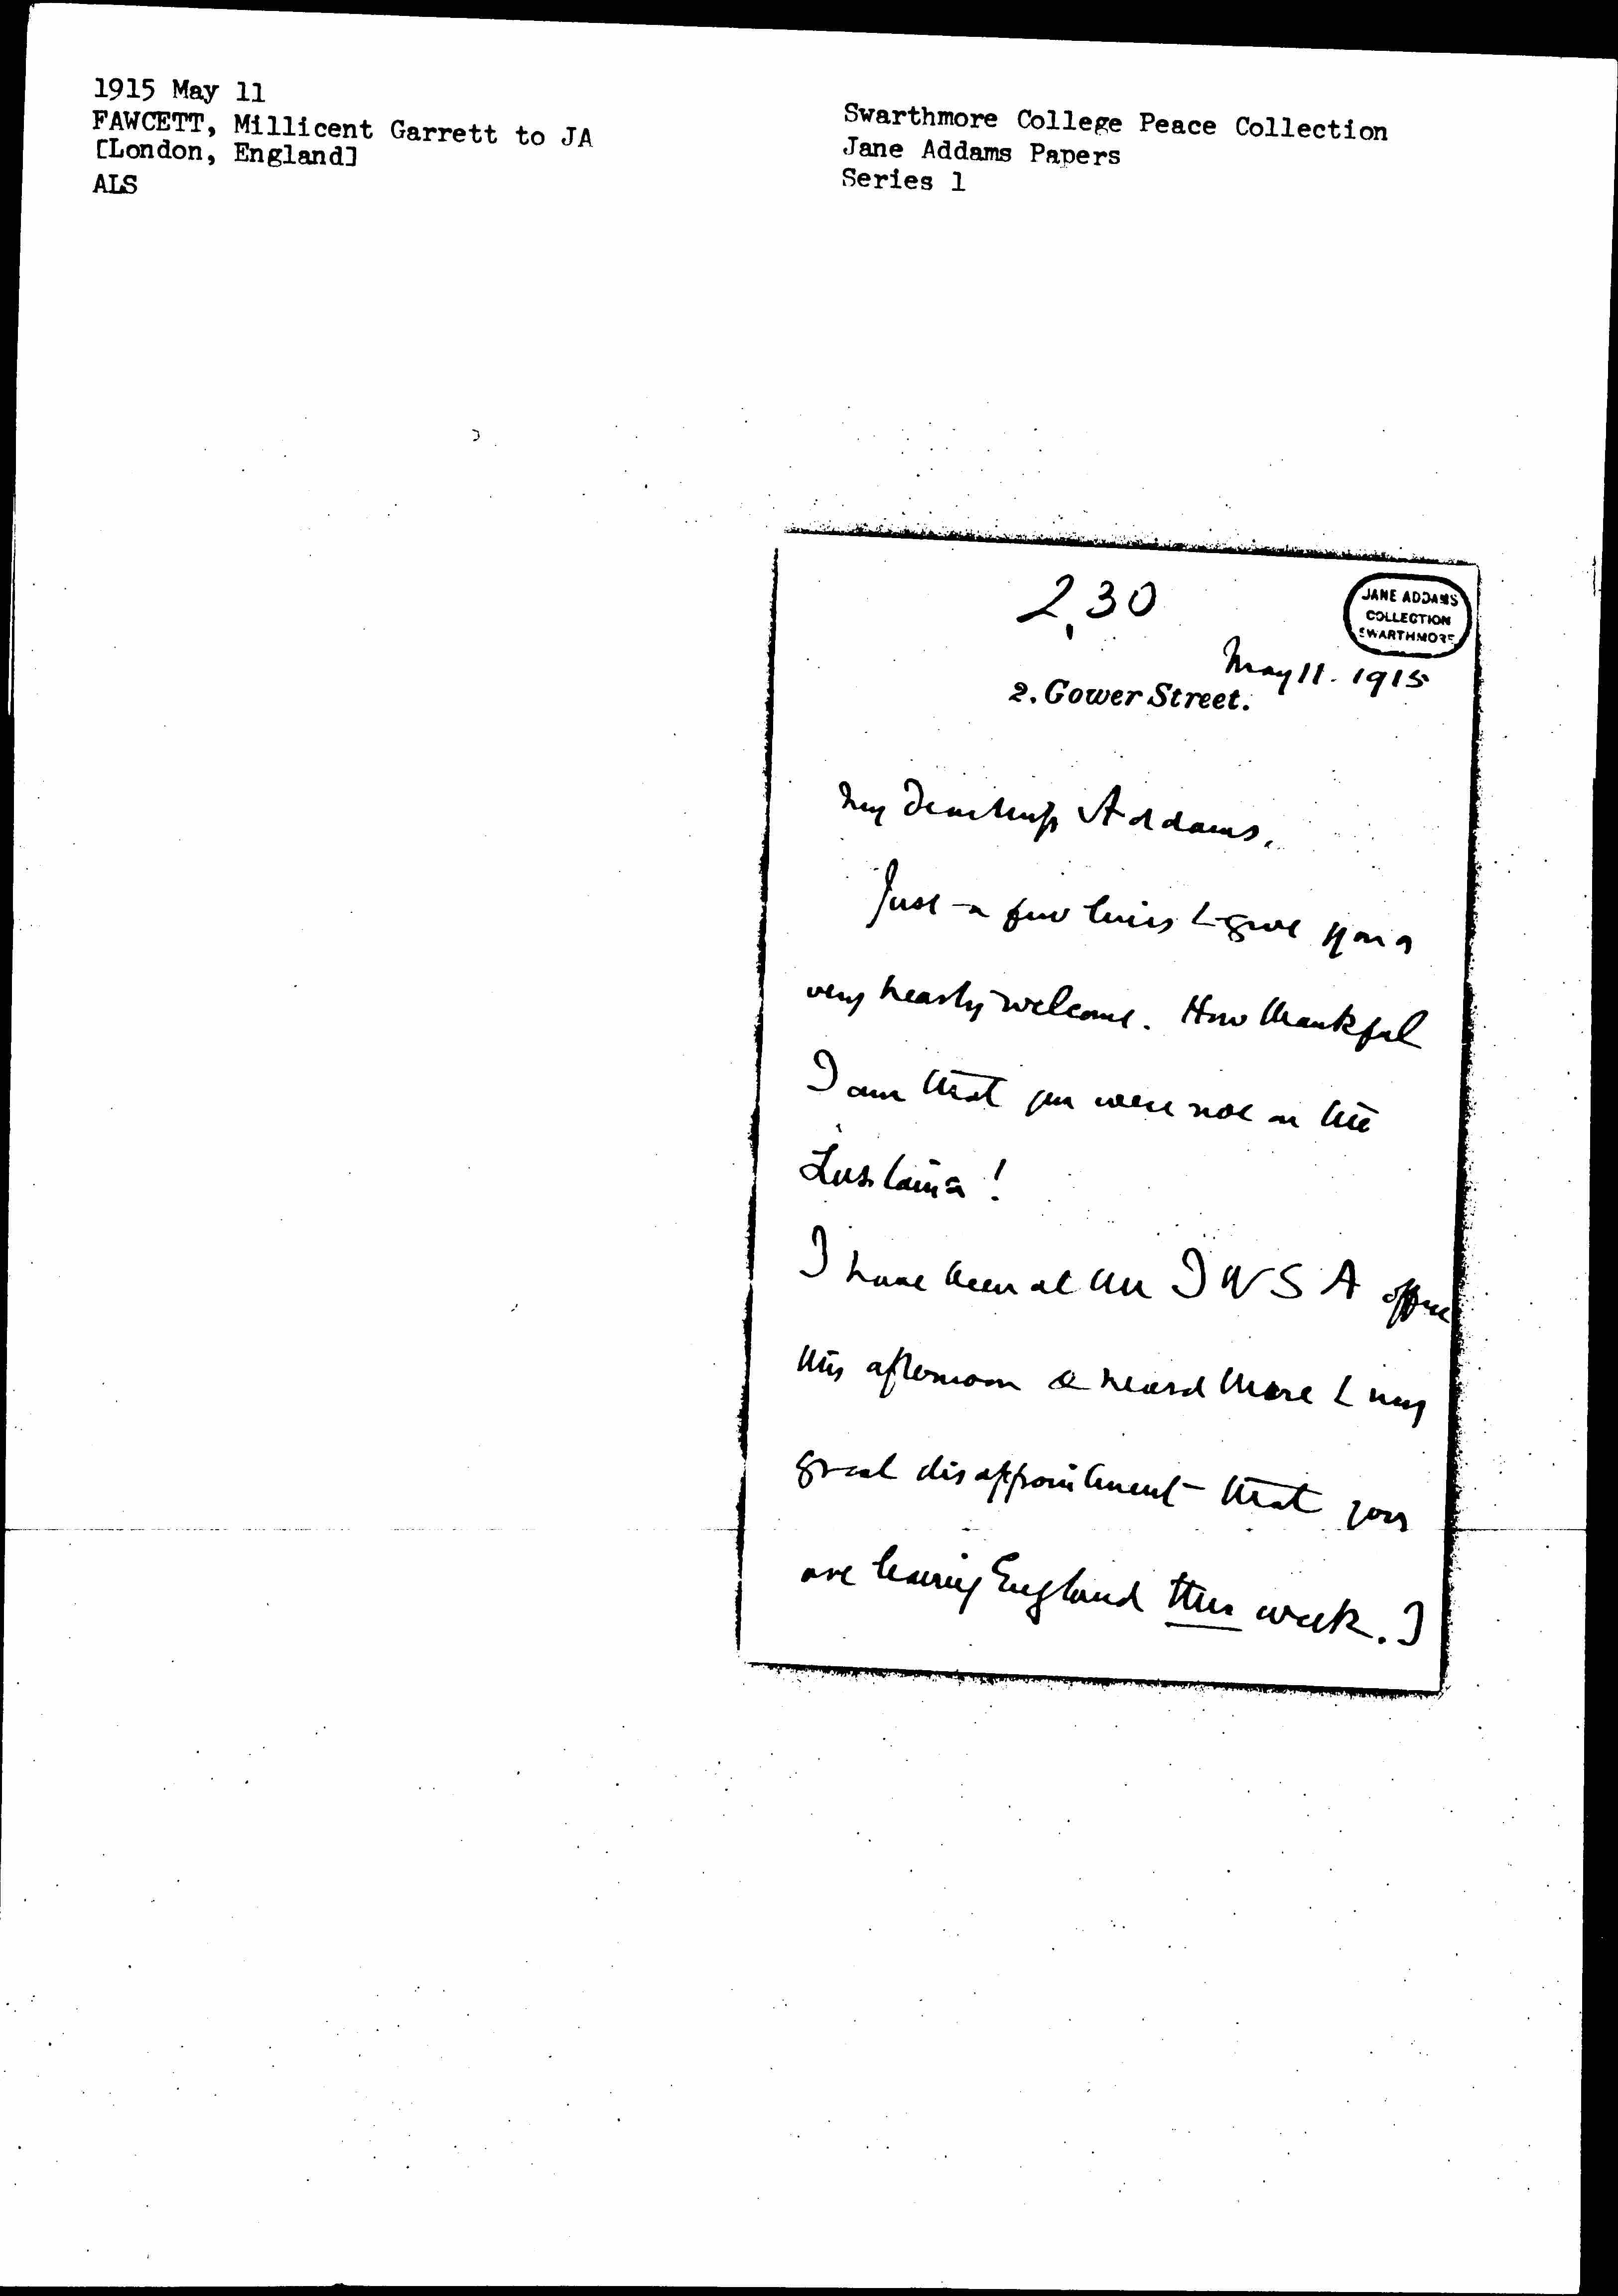 1915 May 11
FAWCETT, Millicent Garrett to JA
[London, England]
ALS
Swarthmore College Peace Collection
Jane Addams Papers
Series 1
2.30
JANE ADDAMS
COLLECTION
SWARTHMORE
May 11. 1915
2. Gower Street.
My Dear Miss Addams,
Just a few lines to give you a
very hearty welcome. How thankful
I am that you were not on the
Lusitania!
I have been at the I W S A office
this afternoon & heard there to my
great disappointment that you
are leaving England this week. I